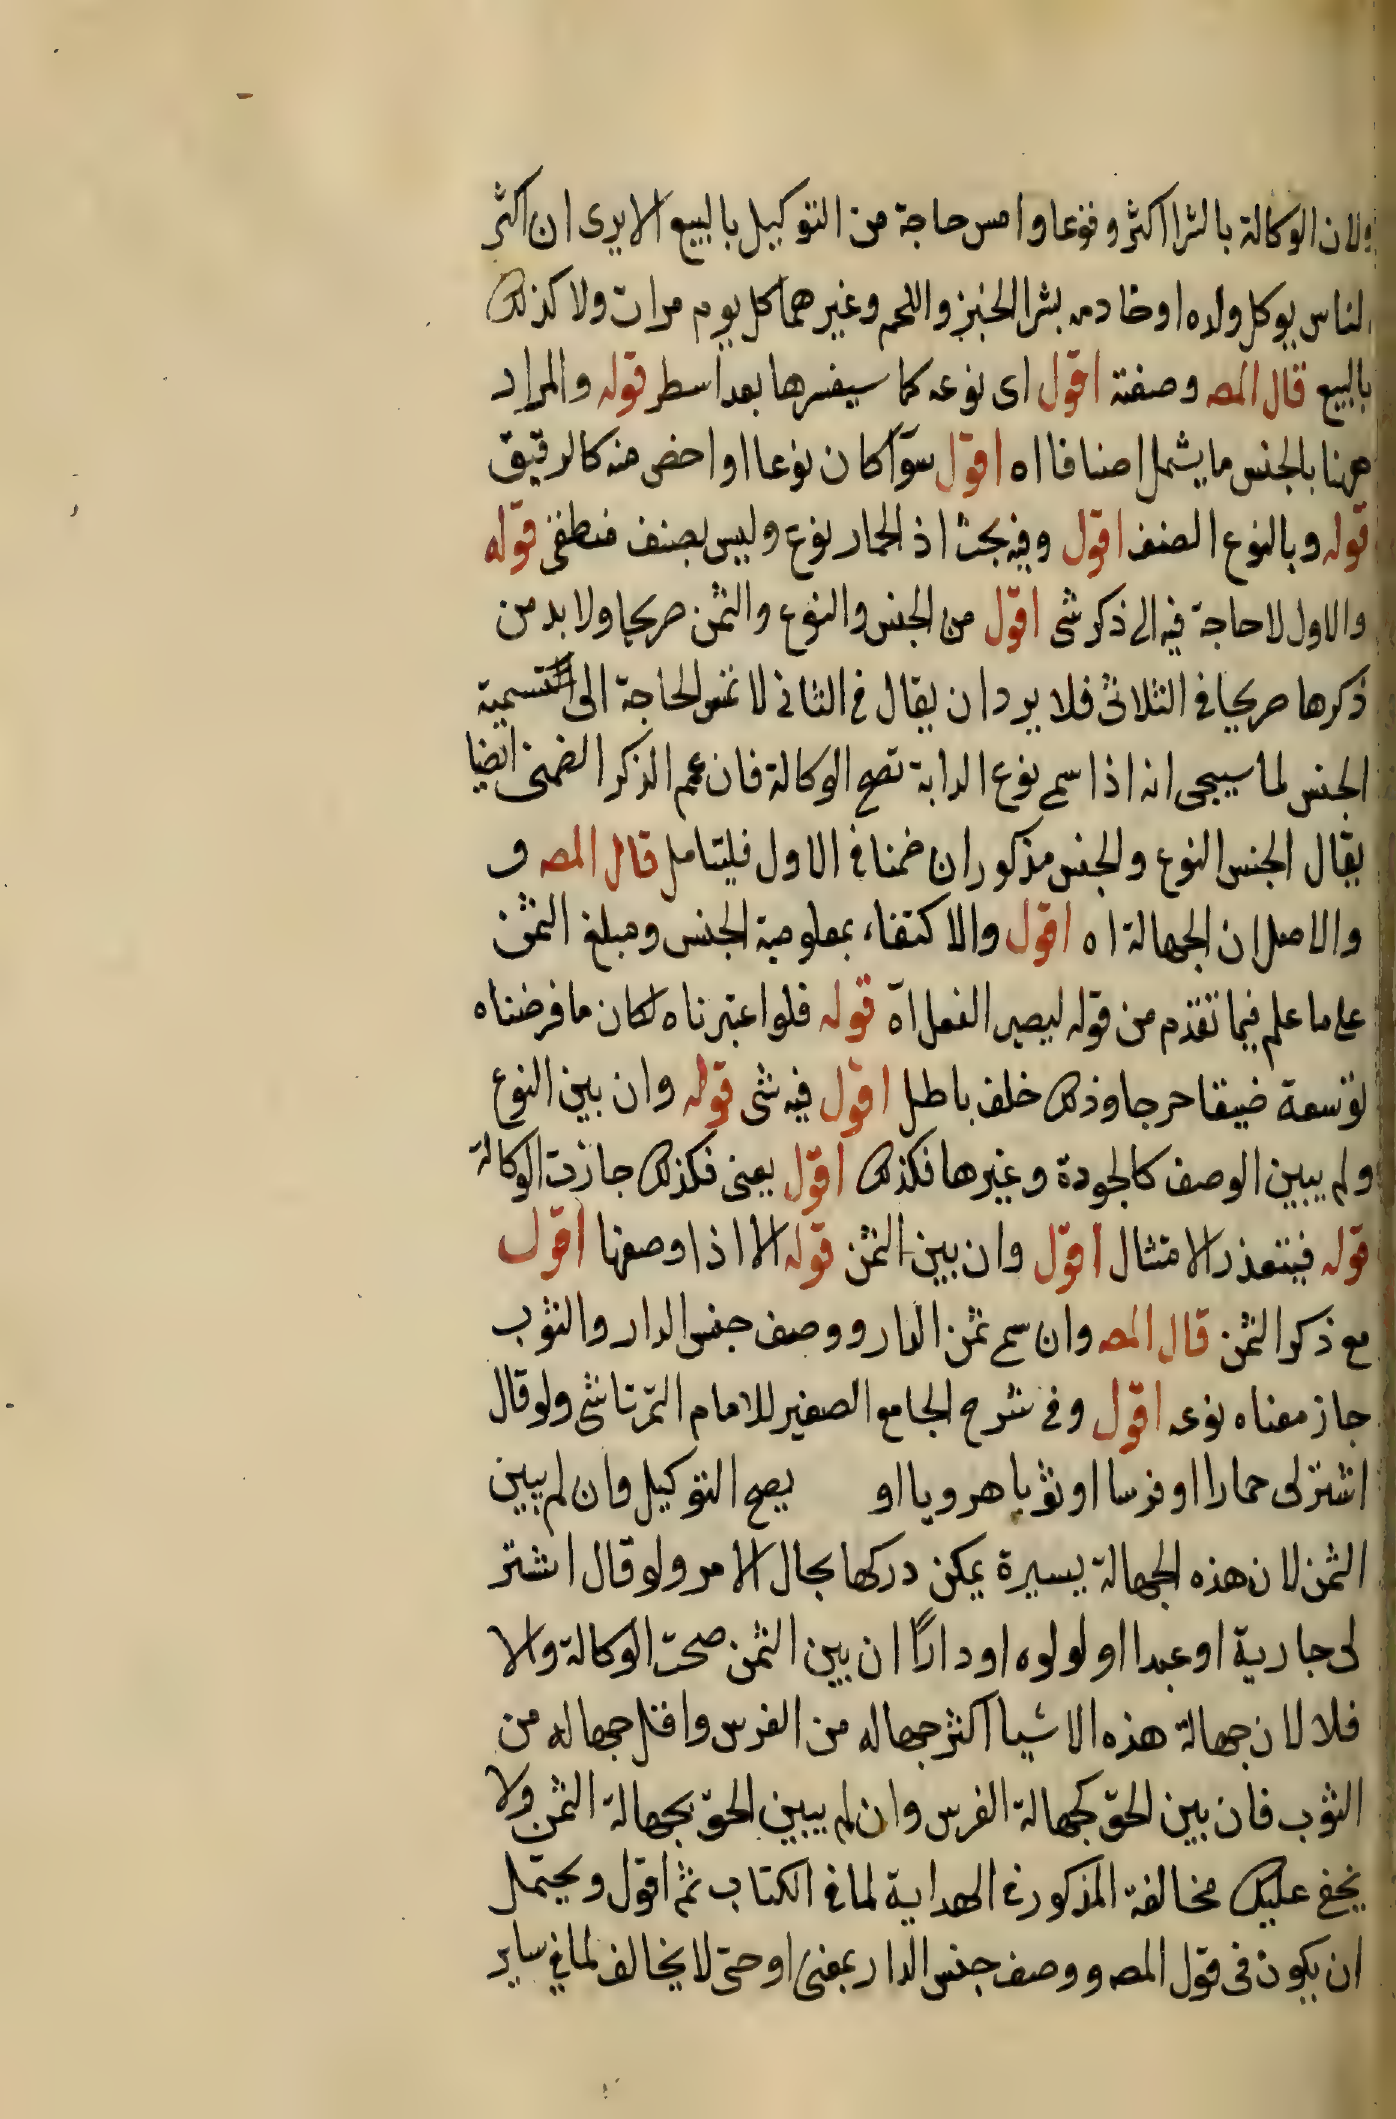 ولان الوكالة بالشرا اكثر وقوعا وامس حاجة من التوكيل بالبيع الا يرى ان اكثر
الناس يوكل ولده او خادمه بشرا الخبز واللحم وغيرهما كل يوم مرات ولا كذلك
بالبيع قال المصه وصفته اقول اى نوعه كما سيفسرها بعد اسطر قوله والمراد
ههنا بالجنس ما يشمل اصنافا اه اقول سوآ كان نوعا او اخص منه كالرقيق
قوله وبالنوع الصنف اقول وفيه بحث اذ الحمار نوع وليس بصنف منطقى قوله
والاول لا حاجة فيه الى ذكر شى اقول من الجنس والنوع والثمن صريحا ولا بد من
ذكرها صريحا فى الثلاثى فلا يرد ان يقال فى الثانى لا تمس الحاجة الى التسمية
الجنس لما سيجى انه اذا سمى نوع الدابة تصح الوكالة فان عمم الذكر الضمنى ايضا
يقال الجنس النوع والجنس مذكوران ضمنا فى الاول فليتامل قال المصه و
والاصل ان الجهالة اه اقول والاكتفاء بمعلومية الجنس ومبلغ الثمن
على ما علم فيما تقدم من قوله ليصير الفعل اه قوله فلو اعتبرناه لكان ما فرضناه
توسعة ضيقا حرجا وذلك خلف باطل اقول فيه شى قوله وان بين النوع
ولم يبين الوصف كالجودة وغيرها فكذلك اقول يعنى فكذلك جازت الوكالة
قوله فيتعذر الامتثال اقول وان بين الثمن قوله الا اذا وصفها اقول
مع ذكر الثمن قال المصه وان سمى ثمن الدار ووصف جنس الدار والثوب
جاز معناه نوعه اقول وفى شرح الجامع الصغير للامام التمرتاشى ولو قال
اشتر لى حمارا او فرسا او ثوبا هرويا او يصح التوكيل وان لم يبين
الثمن لان هذه الجهالة يسيرة يمكن دركها بحال الامر ولو قال اشتر
لى جارية او عبدا او لولوه او دارًا ان بين الثمن صحت الوكالة والا
فلا لان جهالة هذه الاشيا اكثر جهاله من الفرس واقل جهاله من
الثوب فان بين الحق كجهالة الفرس وان لم يبين الحق بجهالة الثمن ولا
يخفى عليك مخالفة المذكور فى الهداية لما فى الكتاب ثم اقول ويحتمل
ان يكون فى قول المصه ووصف جنس الدار بمعنى او حتى لا يخالف لما فى ساير